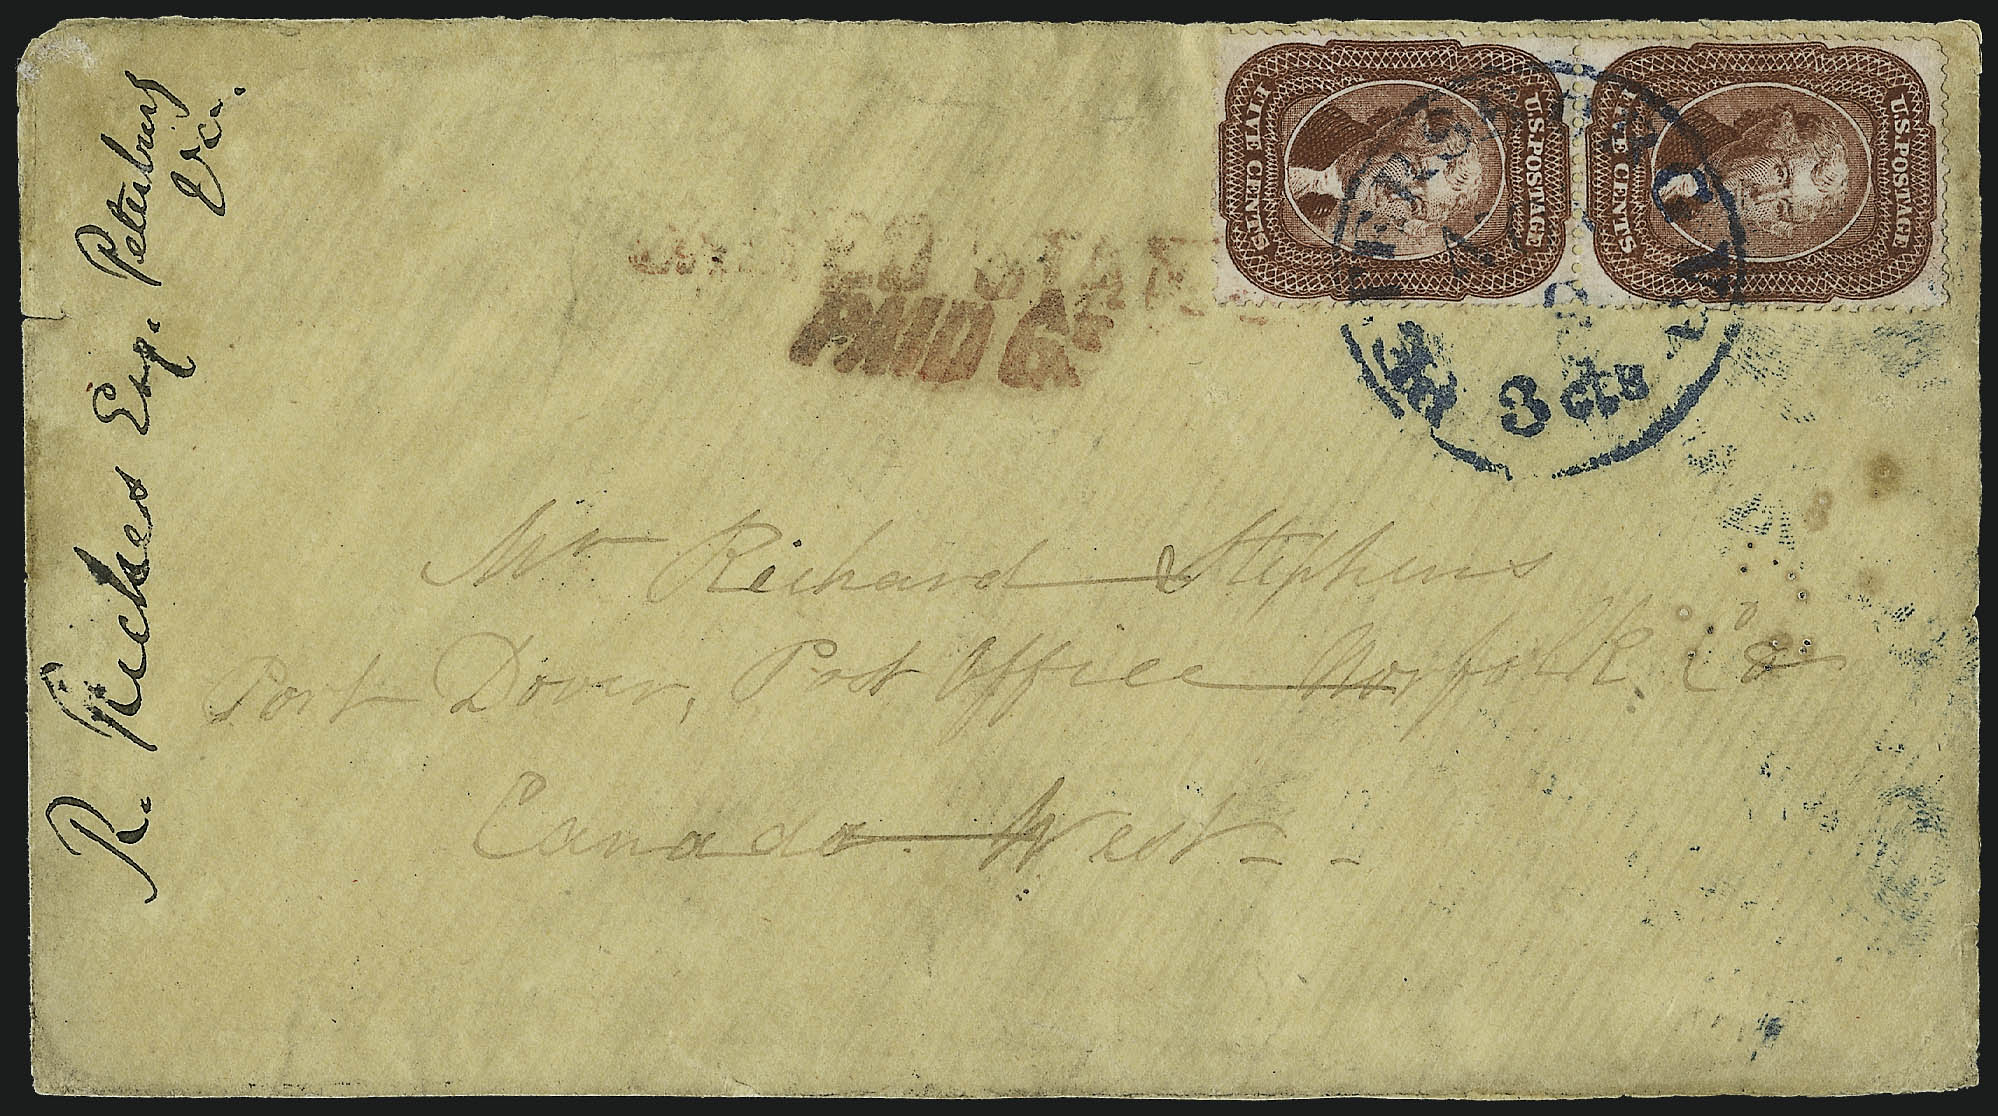 R. Riches Esq. Petersburg
Va.
U.S. POSTAGE
FIVE CENTS
U.S. POSTAGE
FIVE CENTS
PETERSBURG VA
3 cts
U. STATES
PAID 6d
Mr Richard Stephens
Port Dover, Post Office Norfolk Co
Canada West